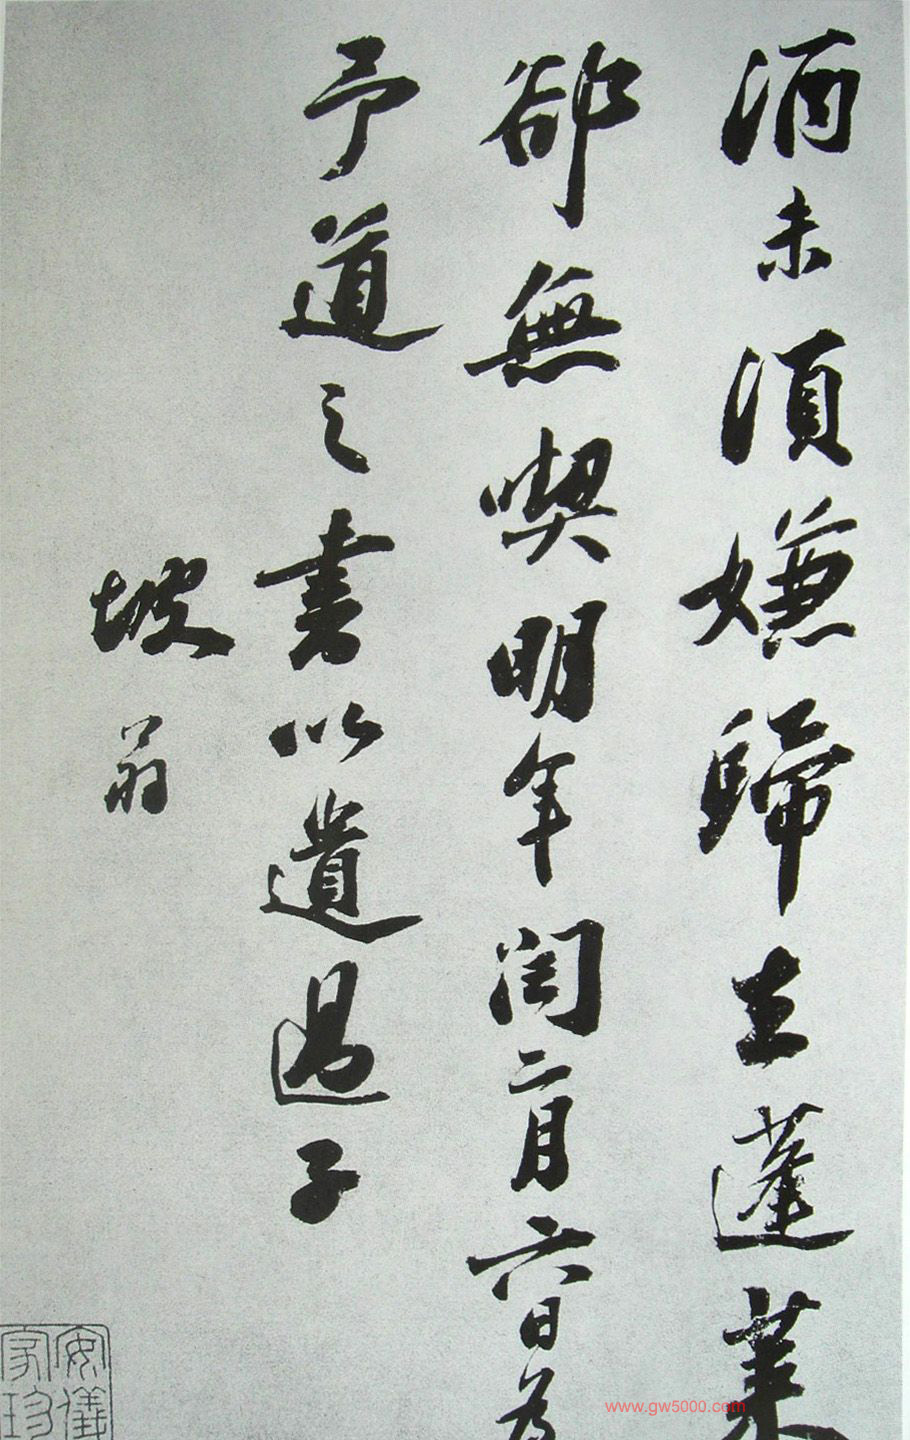 酒未須嫌歸去蓬萊
卻無喫明年閏二月六日為
予道之書以遺過子
坡翁
安儀
家珍
www.gw5000.com